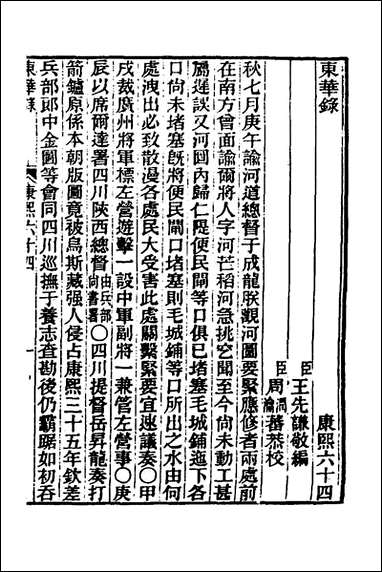 東華錄 康熙六十四
臣王先謙敬編
臣周潤蕃恭校
秋七月庚午諭河道總督于成龍朕觀河圖要緊應修者兩處前
在南方曾面諭爾將人字河芒稻河急挑空聞至今尚未動工甚
屬遲誤又河回內歸仁隄便民閘等口俱已堵塞毛城鋪迤下各
口尚未堵塞旣將便民閘口堵塞則毛城鋪等口所出之水由何
處洩出必致散漫各處民大受害此處關繫緊要宜速議奏〇甲
戌裁廣州將軍標左營遊擊一設中軍副將一兼管左營事〇庚
辰以席爾達署四川陝西總督由兵部尚書署〇四川提督岳昇龍奏打
箭鑪原係本朝版圖竟被烏斯藏强人侵占康熙三十五年欽差
兵部郎中金圖等會同四川巡撫于養志查勘後仍霸踞如初吞
東華錄 康熙六十四 一